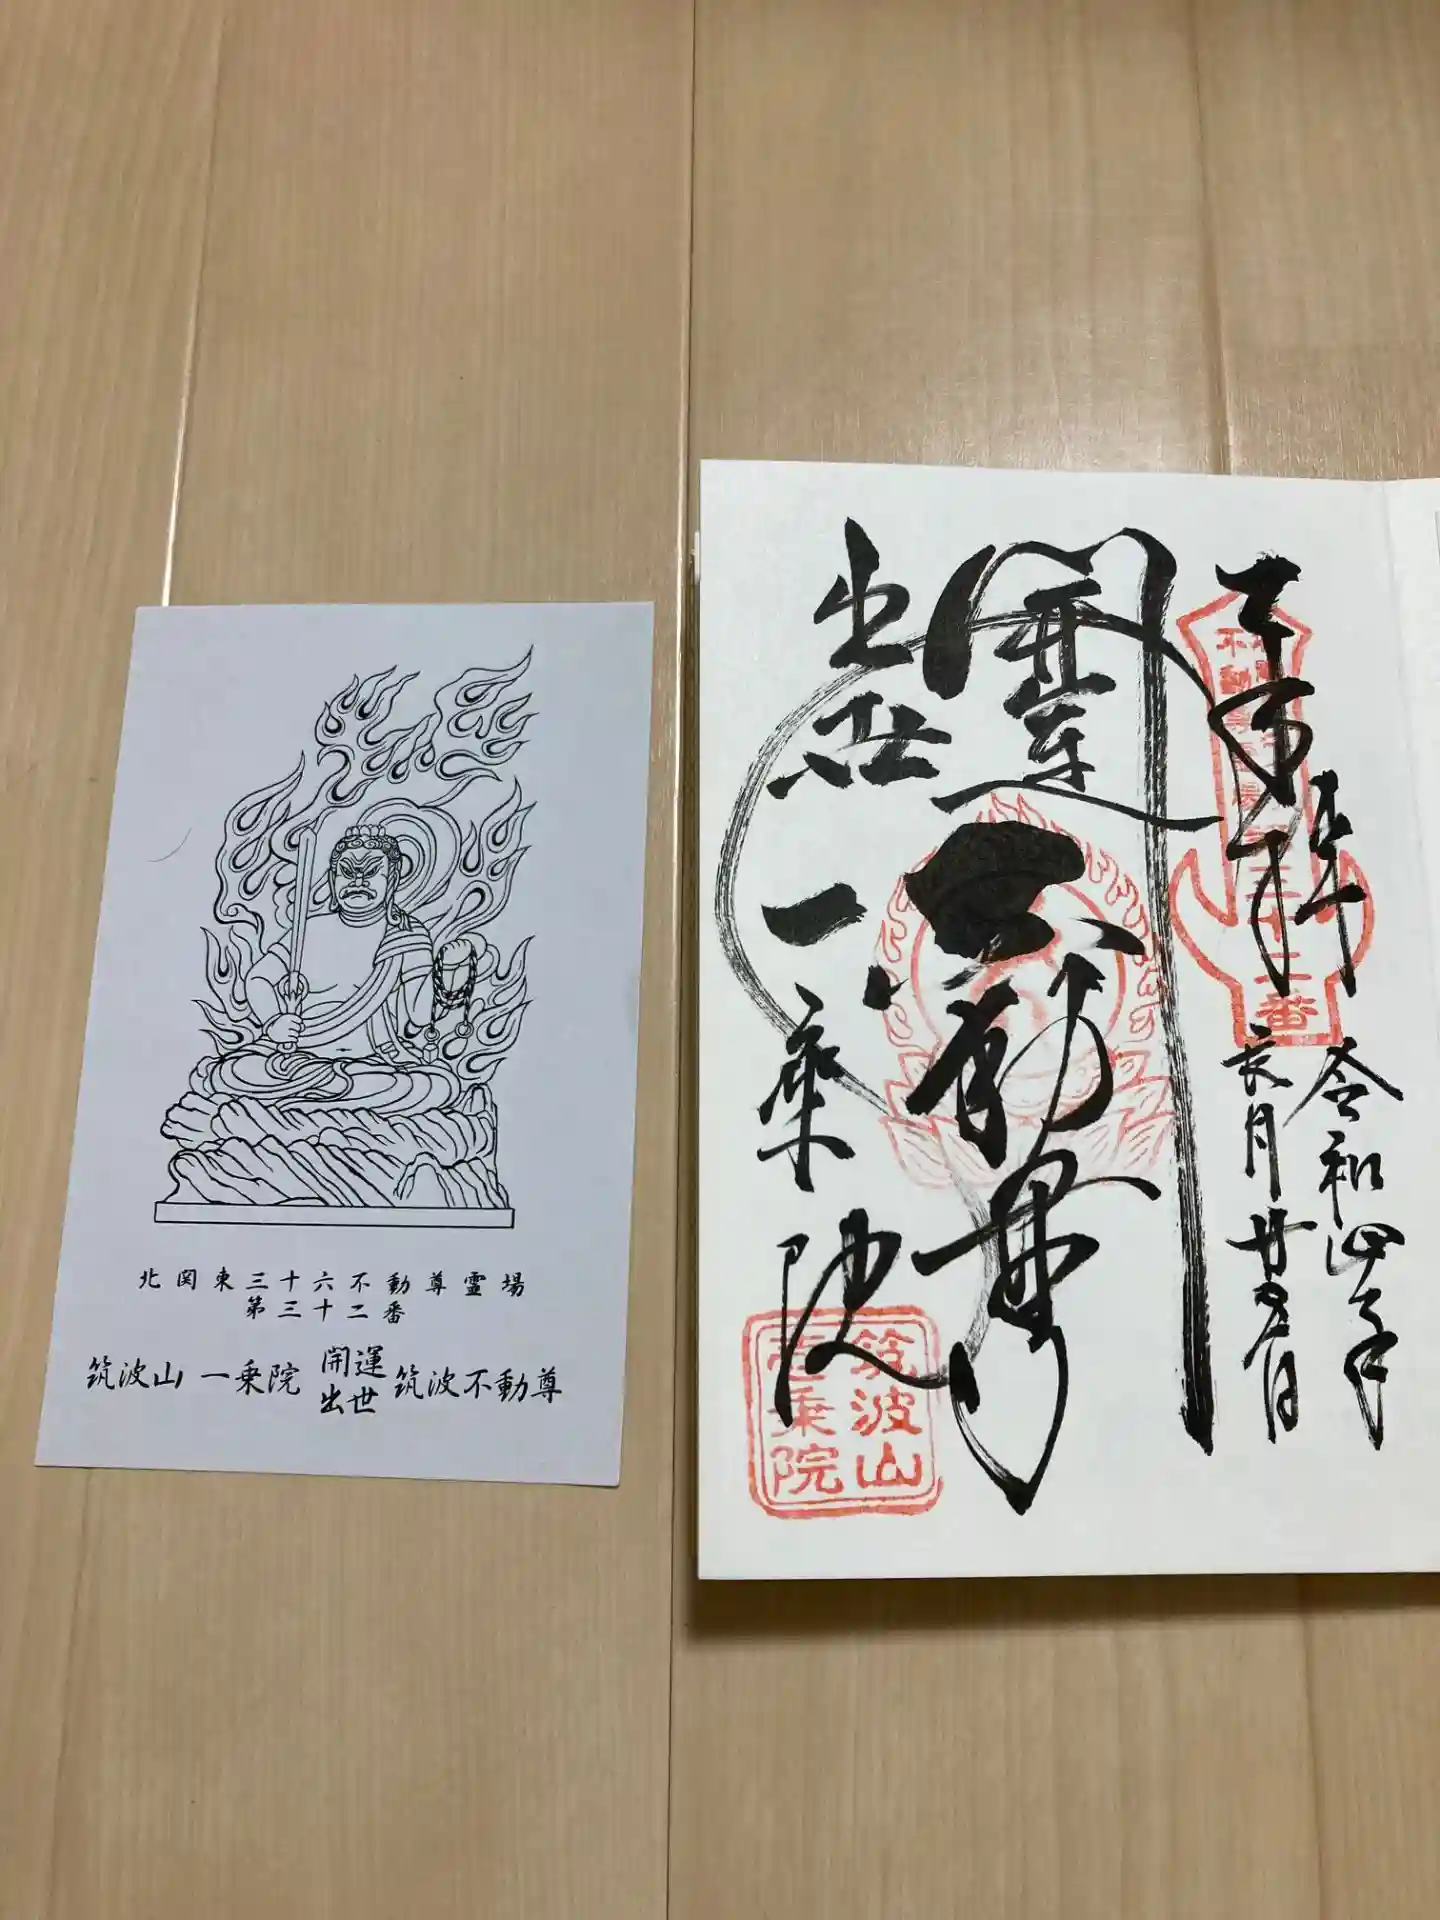 北関東三十六不動尊霊場
第三十二番
筑波山 一乗院 開運出世 筑波不動尊
奉拝
令和四年
長月廿五日
三十二番
開運
不動尊
出世
一乗院
筑波山
壱乗院